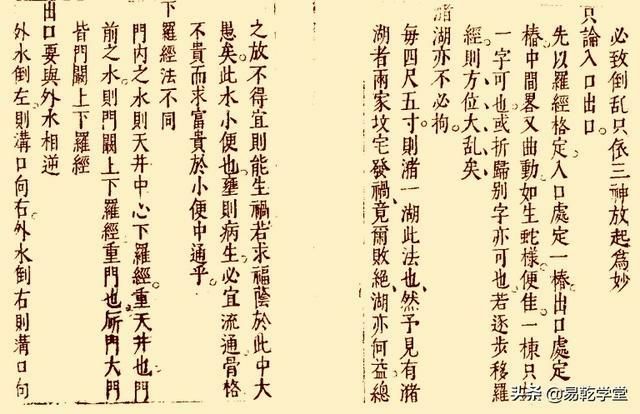 必致倒乱只依三神放起為妙
只論入口出口
先以羅經格定入口處定一樁出口處定一
樁中間畧又曲動如生蛇樣便佳一棟只
一字可也或折歸别字亦可也若逐步移羅
經則方位大乱矣
瀦湖亦不必拘
毎四尺五寸則瀦一湖此法也然予見有瀦
湖者兩家坟宅發禍竟爾敗絶湖亦何益緫
之放不得宜則能生禍若求福蔭於此中大
愚矣此水小便也壅則病生必宜流通骨格
不貴而求富貴於小便中通乎
下羅經法不同
門内之水則天井中心下羅經重天井也門
前之水則門闕上下羅經重門也厛門大門
皆門闕上下羅經
出口要與外水相逆
外水倒左則溝口向右外水倒右則溝口向
头条 @易乾学堂